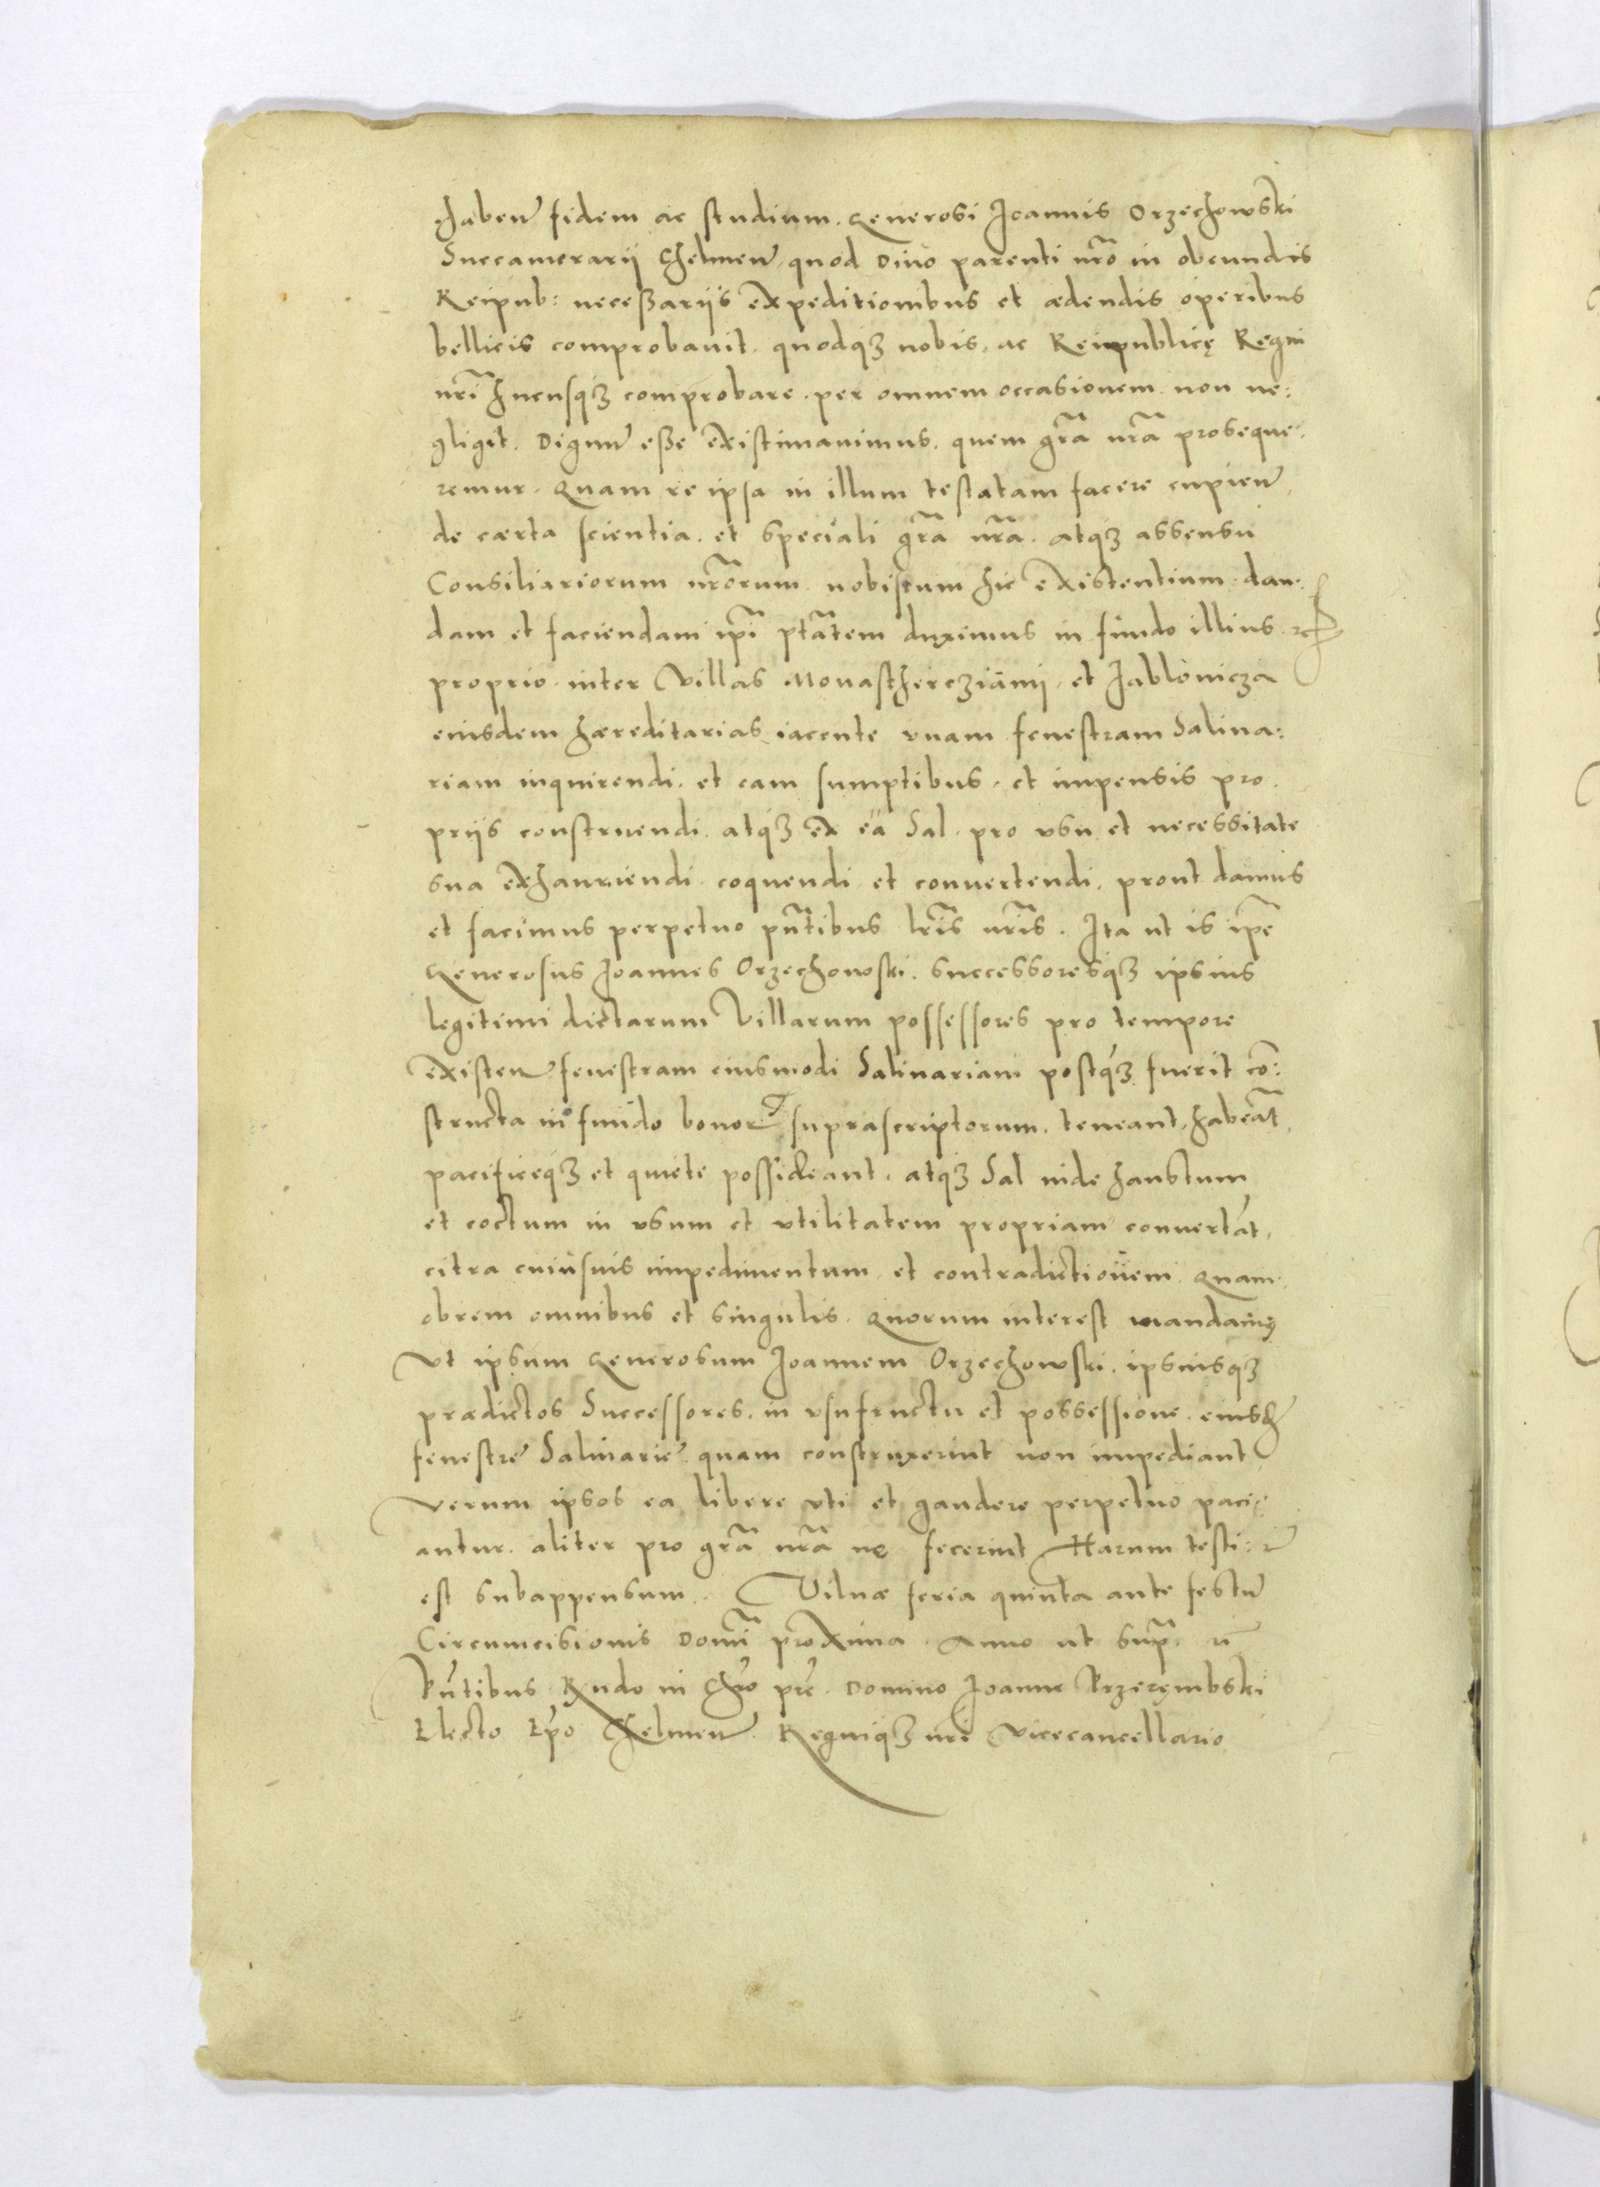 haben̄ fidem ac studium. Generosi Ioannis Orzechowski
Succamerarij Chelmen̄ quod Diuo parenti nr̄o in obeundis
Reipub: neceßarijs expeditionibus et ædendis operibus
bellicis comprobauit. quodqꝫ nobis, ac Reipublicę Regni
nr̄i hucusqꝫ comprobare. per omnem occasionem non ne:
gligit. Dignū eße existimauimus. quem gr̄a nr̄a proseque:
remur. Quam re ipsa in illum testatam facere cupien̄,
de cærta scientia. et speciali gr̄a nr̄a. atqꝫ assensu
Consiliariorum nr̄orum nobiscum hic existentium. dan:
dam et faciendam ip̄i ptātem duximus in fundo illius
proprio inter Villas Monasthircziani, et Jabloniczа
eiusdem hæreditarias iacente vnam fenestram Salina:
riam inquirendi. et eam sumptibus. et impensis pro:
prijs construendi. atqꝫ ex ea Sal. pro vsu et necessitate
sua exhauriendi. coquendi et conuertendi, prout damus
et facimus perpetuo pn̄tibus lr̄is nr̄is. Ita ut is ip̄e
Generosus Ioannes Orzechowski. successoresqꝫ ipsius
legitimi dictarum Villarum possessores pro tempore
existen̄ fenestram eiusmodi Salinariam postqꝫ fuerit cō:
structa in fundo bonoꝝ suprascriptorum. teneant, habeāt,
pacificeqꝫ et quiete possideant. atqꝫ Sal inde haustum
et coctum in vsum et vtilitatem propriam conuertāt,
citra cuiusuis impedimentum et contradictionem. Quam
obrem omnibus et singulis. quorum interest mandamus
Vt ipsum Generosum Ioannem Orzechowski. ipsiusqꝫ
prædictos Successores. in vsufructu et possessione. eiusd̄
fenestre Salinarie quam construxerint non impediant
verum ipsos ea libere vti et gaudere perpetuo paci:
antur. aliter pro gr̄a nr̄a ne fecerint Harum testi:
est subappensum. Vilnæ feria quinta ante festū
Circumcisionis Domī proxima. Anno ut supr̄
Pn̄tibus Rn̄do in Chr̄o pr̄e Domino Ioanne Przerębski
Electo Ep̄o Chelmen̄. Regniqꝫ nr̄i Vicecancellario